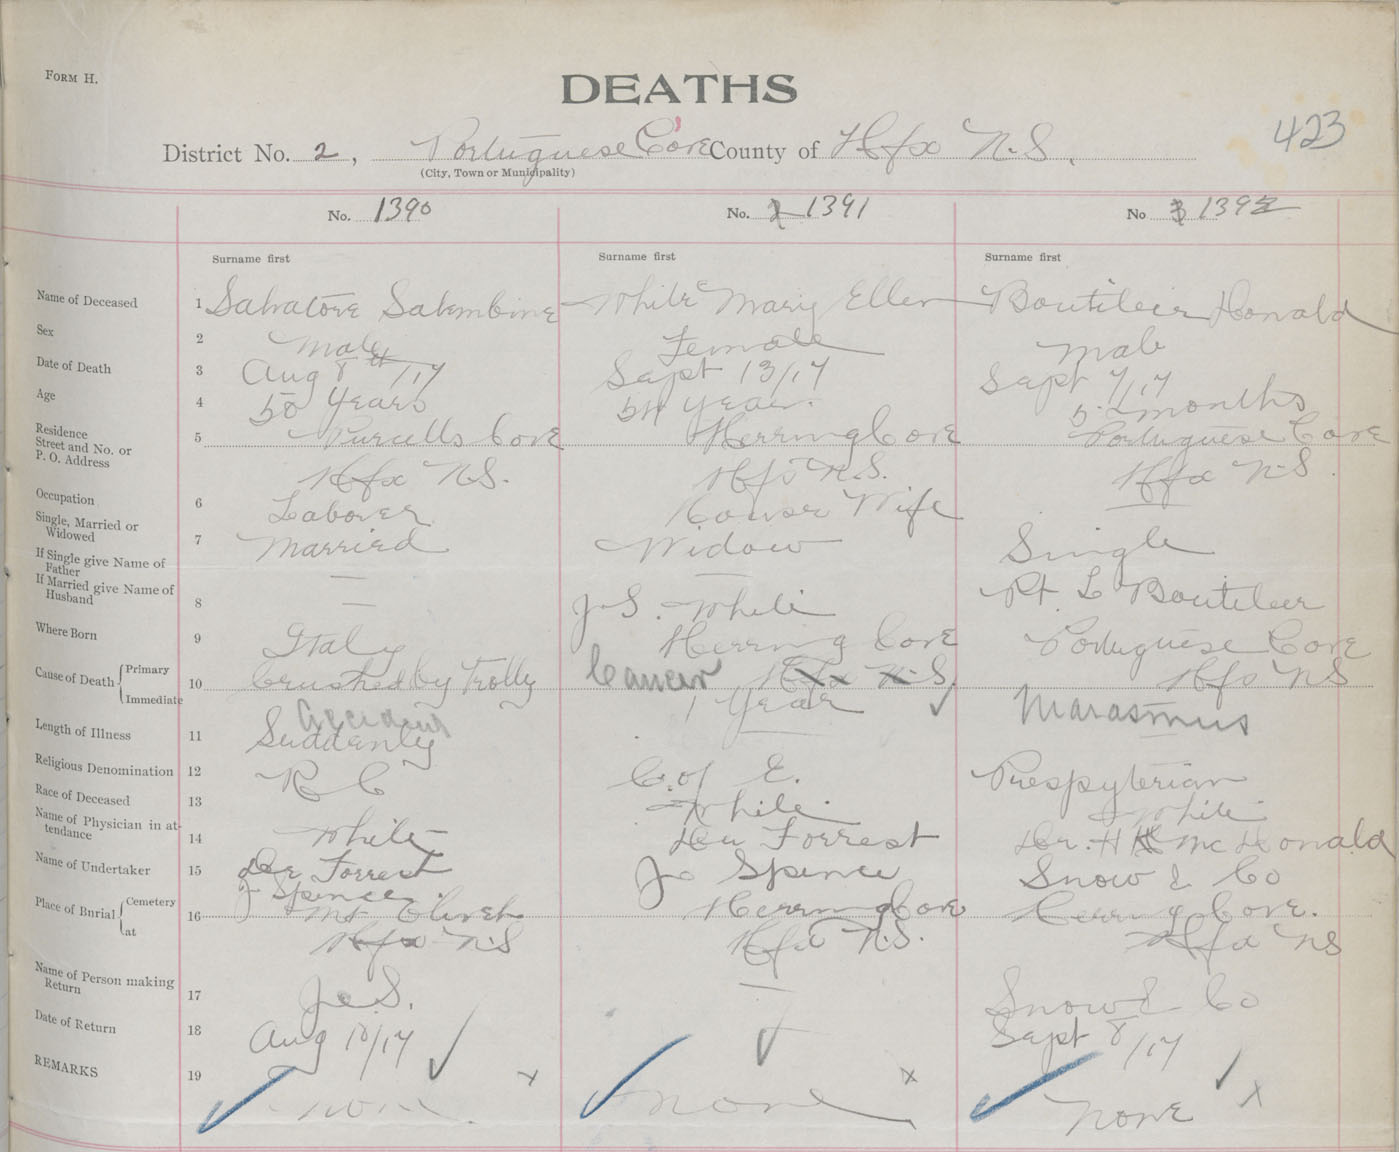 FORM H.
DEATHS
423
District No. 2, Portuguese Cove County of Hfx N.S.
(City, Town or Municipality)
No. 1390 No. 2 1391 No 3 1392
Surname first Surname first Surname first
Name of Deceased 1 Salvatore Salembine White Mary Ellen Boutileir Donald
Sex 2 Male Female Male
Date of Death 3 Aug 8th /17 Sept 13/17 Sept 7/17
Age 4 50 Years 54 Year. 5 months
Residence
Street and No. or 5 Purcells Cove Herring Cove Portuguese Cove
P. O. Address
Hfx N.S. Hfx N.S. Hfx N.S.
Occupation 6 Laborer House Wife —
Single, Married or
Widowed 7 Married Widow Single
If Single give Name of
Father — — Boutileer
If Married give Name of
Husband 8 — J S. White
Where Born 9 Italy Herring Cove Portuguese Cove
Cause of Death Primary 10 Crushed by Trolly Cancer Hfx N.S. Hfx NS
Immediate Accident 1 Year Marasmus
Length of Illness 11 Suddenly —
Religious Denomination 12 R C C. of E. Prespyterian
Race of Deceased 13 White White
Name of Physician in at-
tendance 14 White Dr Forrest Dr. H McDonald
Name of Undertaker 15 Dr Forrest J Spence Snow & Co
J Spence
Place of Burial Cemetery 16 Mt Olivet Herring Cove Herring Cove.
at Hfx N.S Hfx N.S. Hfx NS
Name of Person making
Return 17 J S. — Snow & Co
Date of Return 18 Aug 10/17 Sept 8/17
REMARKS 19 none none none